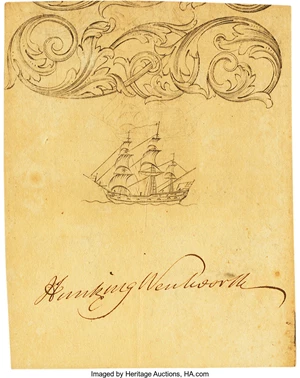 Hunking Wentworth
Imaged by Heritage Auctions, HA.com